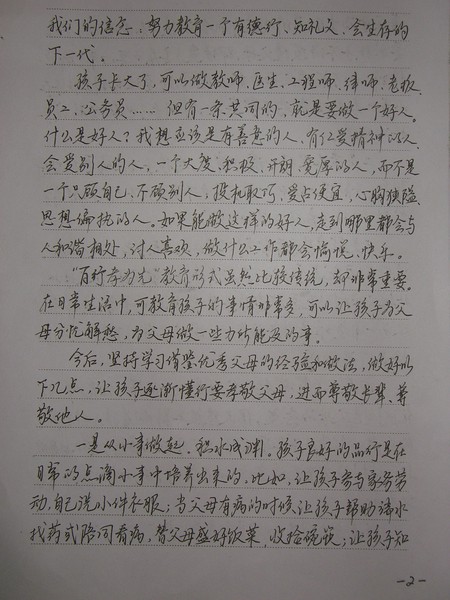 我们的信念，努力教育一个有德行、知礼义、会生存的
下一代。
孩子长大了，可以做教师、医生、工程师、律师、老板、
员工、公务员……但有一条共同的，就是要做一个好人。
什么是好人？我想应该是有善意的人、有仁爱精神的人
会爱别人的人，一个大度、积极、开朗、宽厚的人，而不是
一个只顾自己、不顾别人，投机取巧、爱占便宜，心胸狭隘、
思想偏执的人。如果能做这样的好人，走到哪里都会与
人和谐相处，讨人喜欢，做什么工作都会愉悦、快乐。
“百行孝为先”教育形式虽然比较传统，却非常重要。
在日常生活中，可教育孩子的事情非常多，可以让孩子为父
母分忧解愁，为父母做一些力所能及的事。
今后，坚持学习借鉴优秀父母的经验和做法，做好以
下几点，让孩子逐渐懂得要孝敬父母，进而尊敬长辈、尊
敬他人。
一是从小事做起，积水成渊。孩子良好的品行是在
日常的点滴小事中培养出来的，比如，让孩子参与家务劳
动，自己洗小件衣服；当父母有病的时候让孩子帮助请水
找药或陪同看病，替父母盛好饭菜，收拾碗筷；让孩子知
-2-